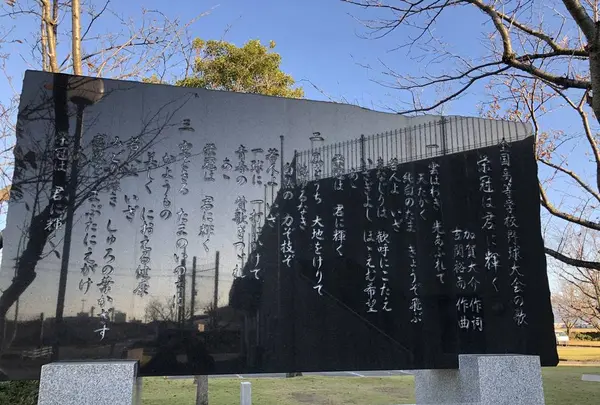 全国高等学校野球大会の歌
栄冠は君に輝く
加賀大介 作詞
古関裕而 作曲
一 雲はわき 光あふれて
天たかく
純白のたま きょうぞ飛ぶ
若人よ いざ
まなじりは 歓呼にこたえ
いさぎよし ほゝえむ希望
栄冠は 君に輝く
二 風をうち 大地をけりて
悔ゆるなき
白熱の 力ぞ技ぞ
若人よ いざ
一球に 一打にかけて
青春の 賛歌をつづれ
栄冠は 君に輝く
三 空をきる たまのいのちに
かようもの
美しく におえる健康
若人よ いざ
みどり濃き しゅろの葉かざす
感激を まぶたにえがけ
栄冠は 君に輝く